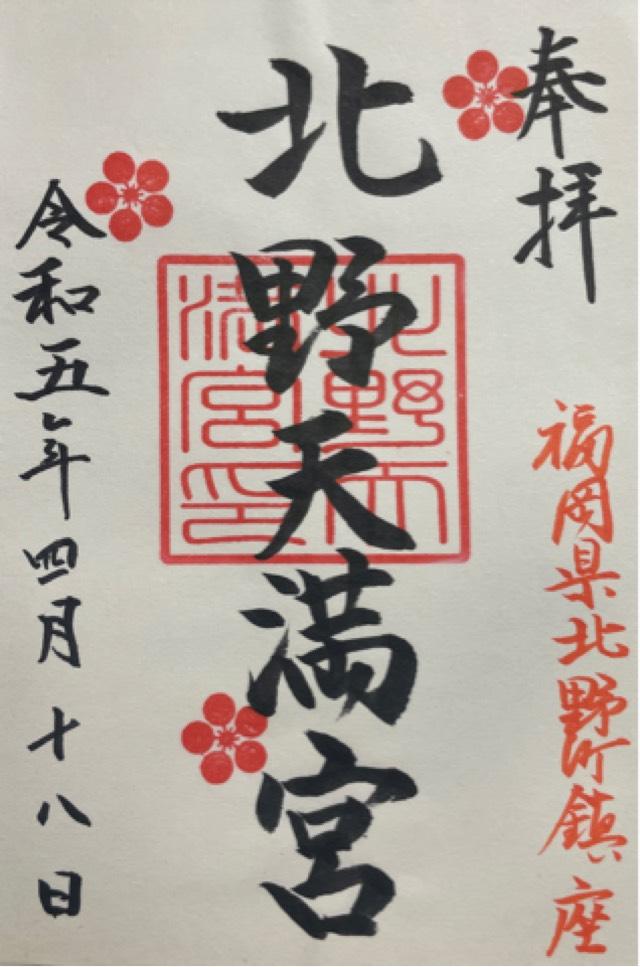 奉拝
福岡県北野町鎮座
北野天満宮
北野天満宮印
令和五年四月十八日